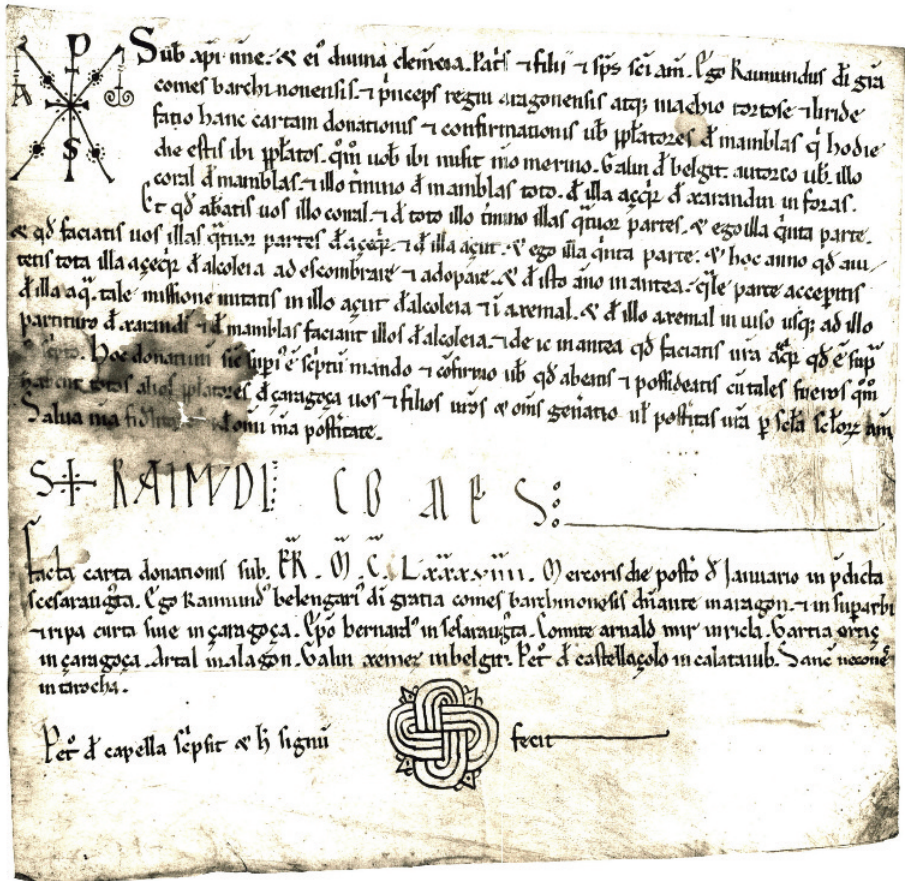 Sub xpi nne. & ei9 divina clem̄cia. Pat̄s ⁊ filii ⁊ sp̄s sc̄i am̄. Ego Raimundus dī grā
comes barchinonensis. ⁊ p̄nceps regni aragonensis atq; machio tortose ⁊ liride
fatio hanc cartam donationis ⁊ confirmationis ub̄ pp̄latores đ mamblas q̄ hodie
die estis ibi pp̄latos. qm̄ uob̄ ibi misit m̄o merino. Galin đ belgit. autorco ub̄. illo
coral đ mamblas. ⁊ illo t̄mino đ mamblas toto. đ illa açeq̄ đ xarandin in foras.
Et qđ abeatis uos illo corral. ⁊ đ toto illo t̄mino illas q̄tuor partes. & ego illa q̄nta parte.
& qđ faciatis uos illas q̄tuor partes đ açeq̄. ⁊ đ illa açut. & ego illa q̄nta parte. & hoc anno qđ aiu
tetis tota illa açeq̄ đ alcoleia ad escombrare ⁊ adopare. & đ isto año in antea. q̄le parte accepitis
đ illa aq̄. tale missione mitatis in illo açut đ alcoleia ⁊ ī axemal. & đ illo axemal in iuso usq; ad illo
partituro đ xarandī ⁊ đ mamblas faciant illos đ alcoleia. ⁊ de ic in antea qđ faciatis ur̄a açeq̄ qđ ē sup̄
sc̄pto. Hoc donatiuū sic sup̄i ē sc̄ptū mando ⁊ cōfirmo ub̄ qđ abeatis ⁊ possideatis cū tales fueros qm̄
habent totos alios pp̄latores đ çaragoça uos ⁊ filios ur̄os & om̄s gen̄atio ul̄ postitas ur̄a p̄ sc̄la sc̄lorꝝ am̄
Salua m̄a fidl̄itate ⁊ đ om̄i m̄a postitate.
S+ RAIMVDI COMES S:
Facta carta donationis sub. ĒR. M̄. C̄. LXXXXVIIII. Mercoris die posto đ Januario in p̄dicta
scesaraug̃ta. Ego Raimund9 belengari9 dī gratia comes barchinonesis dn̄ante in aragon. ⁊ in suprarbi
⁊ ripa curta sine in çaragoça. Ep̄o bernard9 in sc̄saraug̃ta. Comite arnald mir in ricla. Gartia ortiç
in çaragoça. Artal in alagon. Galin xemez in belgit. Pet̄ đ castellaçolo in calataiub. Sanc̄
in darocha.
Pet̄ đ capella sc̄psit & h̄ signū fecit